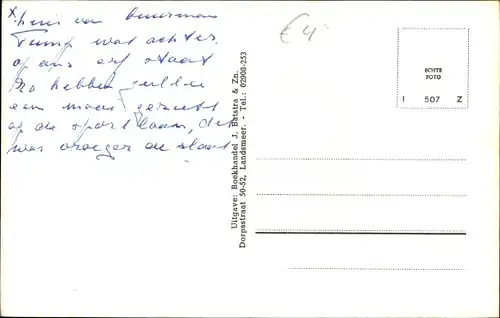 x huis van buurman
Tump wat achter
op ons erf staat
Zo hebben jullie
een mooi gezicht
op de sportlaan, dit
was vroeger de sloot
€4
ECHTE
FOTO
I 507 Z
Uitgave: Boekhandel J. Batstra & Zn.
Dorpsstraat 50-52, Landsmeer. - Tel.: 02908-253